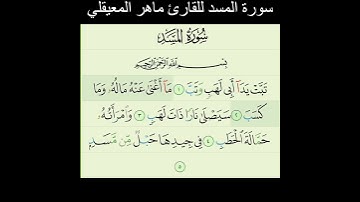 سورة المسد للقارئ ماهر المعيقلي
سُورَةُ المَسَدِ
بِسْمِ اللَّهِ الرَّحْمَٰنِ الرَّحِيمِ
تَبَّتْ يَدَآ أَبِى لَهَبٍ وَتَبَّ ١ مَآ أَغْنَىٰ عَنْهُ مَالُهُۥ وَمَا
كَسَبَ ٢ سَيَصْلَىٰ نَارًا ذَاتَ لَهَبٍ ٣ وَٱمْرَأَتُهُۥ
حَمَّالَةَ ٱلْحَطَبِ ٤ فِى جِيدِهَا حَبْلٌ مِّن مَّسَدٍۭ
٥